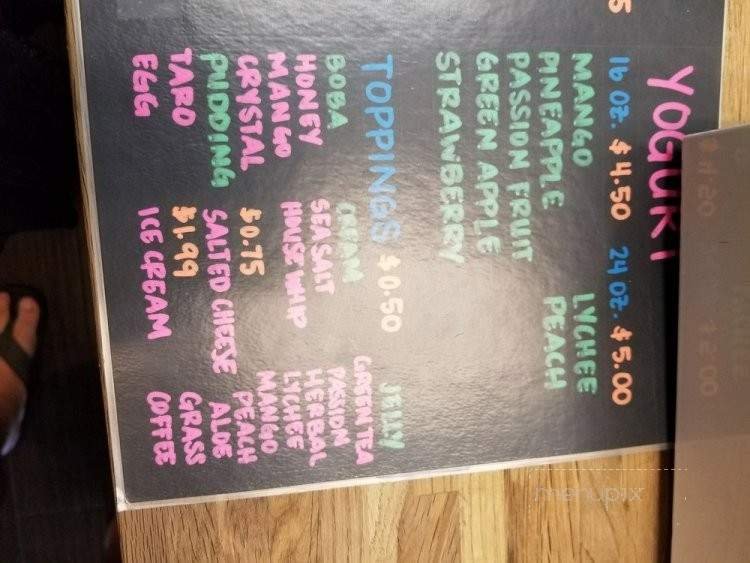 YOGURT
16 OZ. $4.50 24 OZ. $5.00
MANGO
PINEAPPLE
PASSION FRUIT
GREEN APPLE
STRAWBERRY
LYCHEE
PEACH
TOPPINGS $0.50
BOBA
HONEY
MANGO
CRYSTAL
PUDDING
TARO
EGG
CREAM
SEA SALT
HOUSE WHIP
$0.75
SALTED CHEESE
$1.99
ICE CREAM
JELLY
GREEN TEA
PASION
HERBAL
LYCHEE
MANGO
PEACH
ALOE
GRASS
COFFEE
menupix